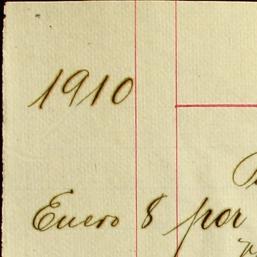 1910
Enero 8 por